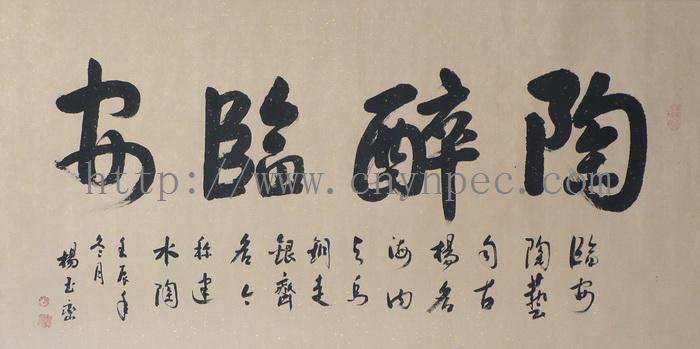 陶醉臨安
臨安
陶藝
自古
揚名
海内
与烏
銅走
銀齊
名今
称建
水陶
壬辰年
冬月
楊玉
http://www.cnynpec.com